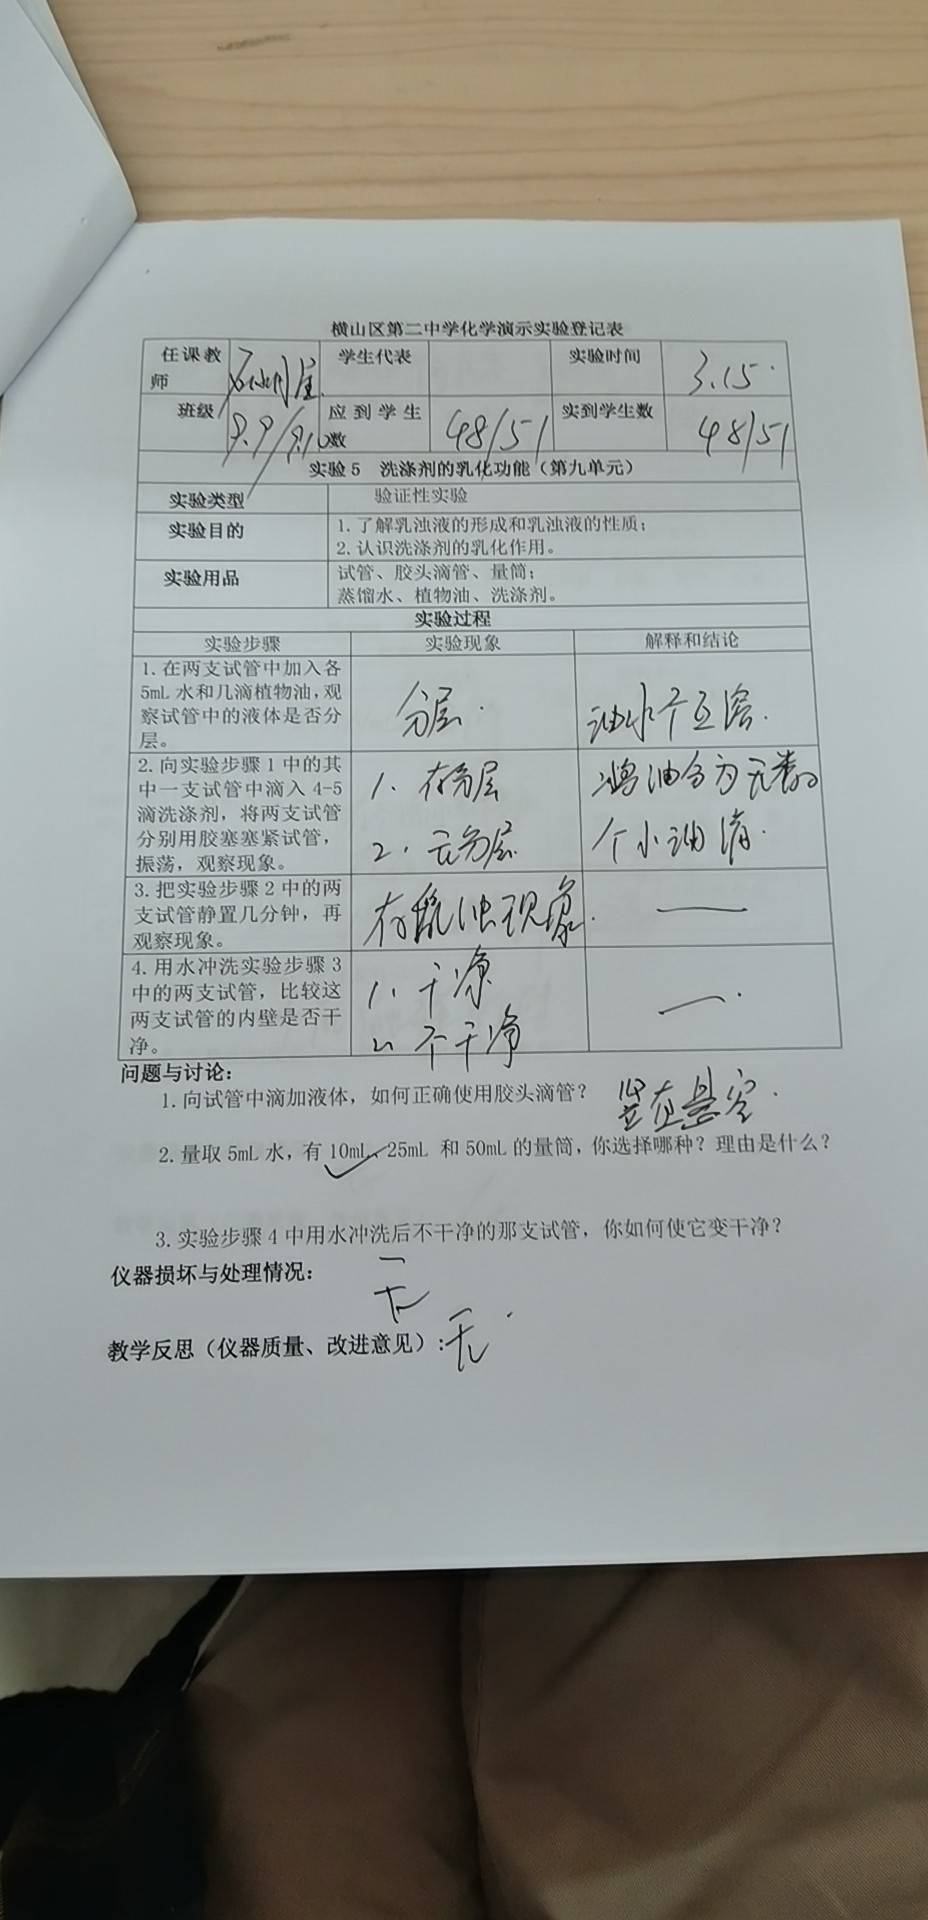 横山区第二中学化学演示实验登记表
任课教师 学生代表 实验时间 3.15
班级 9.9/9.10 应到学生数 48/51 实到学生数 48/51
实验5 洗涤剂的乳化功能（第九单元）
实验类型 验证性实验
实验目的 1.了解乳浊液的形成和乳浊液的性质；
2.认识洗涤剂的乳化作用。
实验用品 试管、胶头滴管、量筒；
蒸馏水、植物油、洗涤剂。
实验过程
实验步骤 实验现象 解释和结论
1.在两支试管中加入各
5mL水和几滴植物油，观
察试管中的液体是否分
层。
分层.
油水不互溶.
2.向实验步骤1中的其
中一支试管中滴入4-5
滴洗涤剂，将两支试管
分别用胶塞塞紧试管，
振荡，观察现象。
1. 有分层
2. 无分层
油分为无数
个小油滴.
3.把实验步骤2中的两
支试管静置几分钟，再
观察现象。
有乳浊现象.
——
4.用水冲洗实验步骤3
中的两支试管，比较这
两支试管的内壁是否干
净。
1. 干净
2. 不干净
——.
问题与讨论：
1.向试管中滴加液体，如何正确使用胶头滴管？ 竖直悬空.
2.量取5mL水，有10mL、25mL 和50mL的量筒，你选择哪种？理由是什么？
3.实验步骤4中用水冲洗后不干净的那支试管，你如何使它变干净？
仪器损坏与处理情况：
无
教学反思（仪器质量、改进意见）：无.